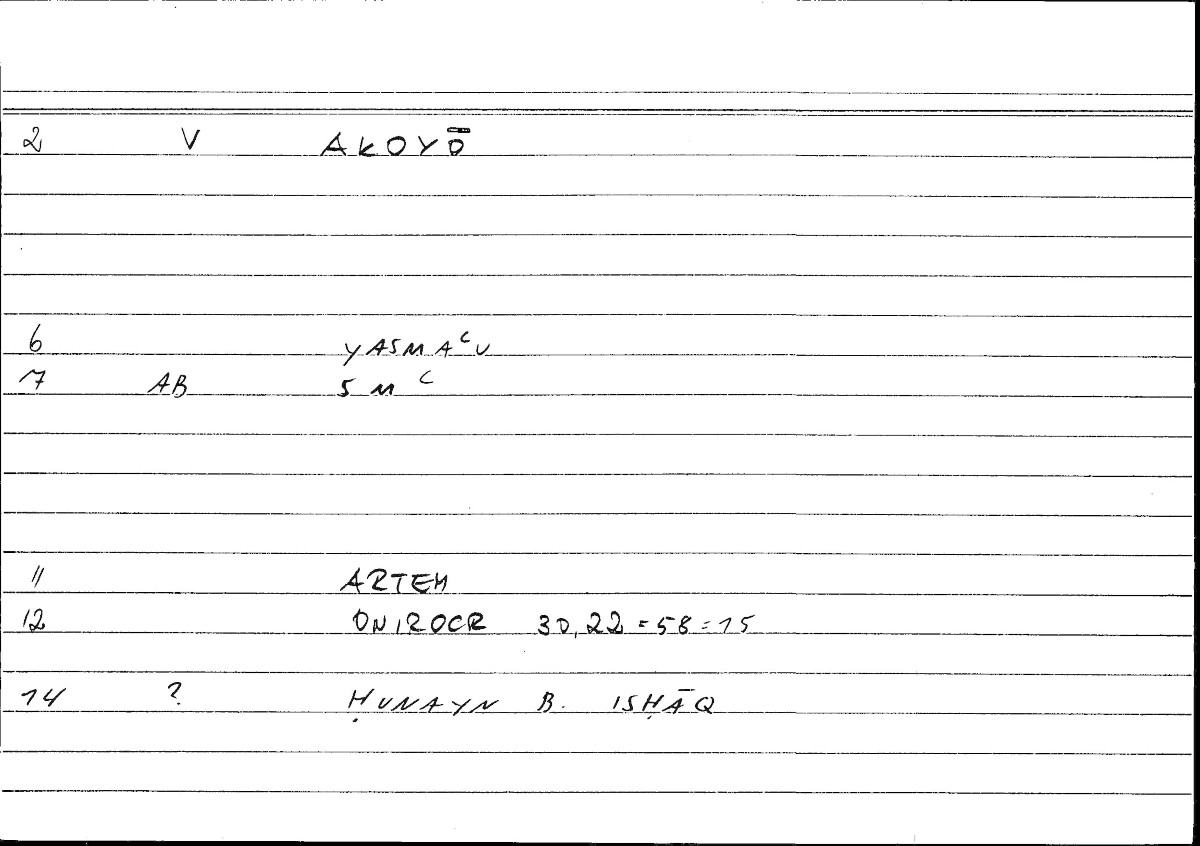 2 V AKOYŌ
6 YASMAʿU
7 AB SMʿ
11 ARTEM
12 ONIROCR 30,22 = 58 = 15
14 ? ḤUNAYN B. ISḤĀQ